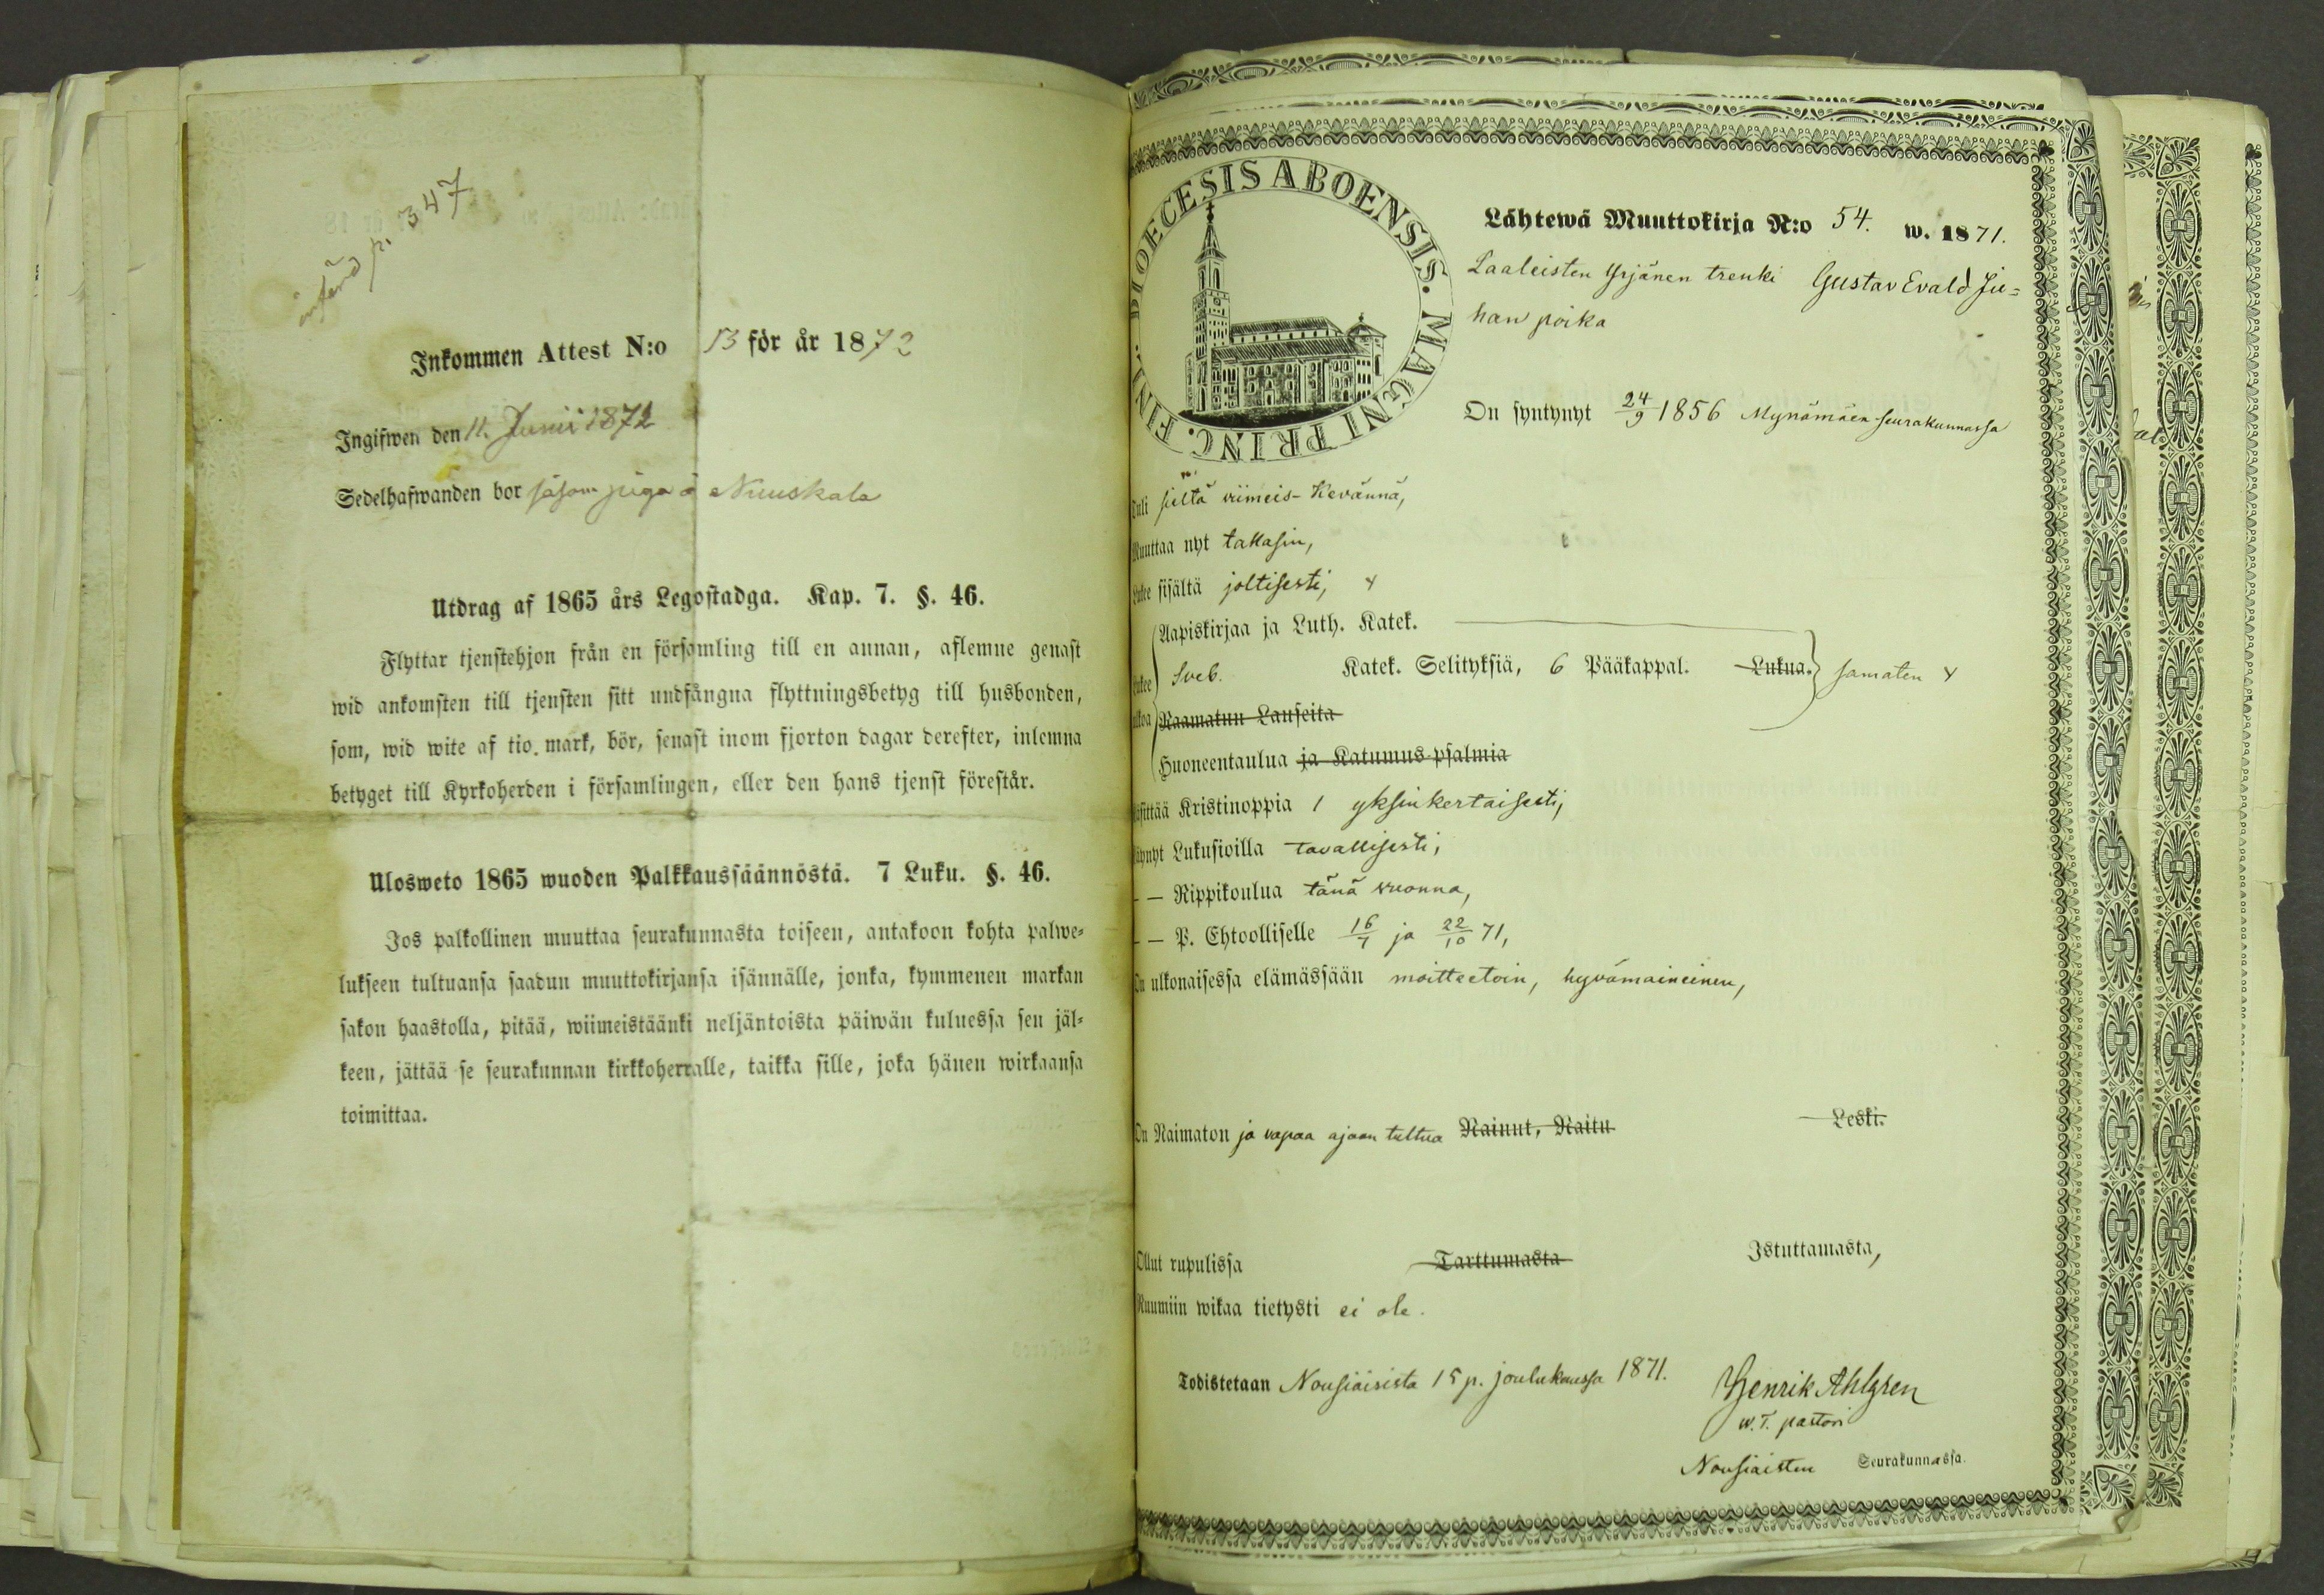 införd p. 347
Inkommen Attest N:o 13 för år 1872
Ingifwen den 11. Junii 1872
Sedelhafwanden bor såsom piga å Nuuskala
Utdrag af 1865 års Legostadga. Kap. 7. §. 46.
Flyttar tjenstehjon från en församling till en annan, aflemne genast
wid ankomsten till tjensten sitt undfångna flyttningsbetyg till husbonden,
som, wid wite af tio mark, bör, senast inom fjorton dagar derefter, inlemna
betyget till Kyrkoherden i församlingen, eller den hans tjenst förestår.
Ulosweto 1865 wuoden Palkkaussäännöstä. 7 Luku. §. 46.
Jos palkollinen muuttaa seurakunnasta toiseen, antakoon kohta palwe=
lukseen tultuansa saadun muuttokirjansa isännälle, jonka, kymmenen markan
sakon haastolla, pitää, wiimeistäänki neljäntoista päiwän kuluessa sen jäl=
keen, jättää se seurakunnan kirkkoherralle, taikka sille, joka hänen wirkaansa
toimittaa.
DIOECESIS ABOENSIS. MAGNI PRINC. FINL.
Lähtewä Muuttokirja N:o 54. w. 1871.
Laaleisten Yrjänen trenki Gustav Evald Ju=
han poika
On syntynyt 24/9 1856 Mynämäen seurakunnassa
Tuli sieltä viimeis-Kevännä,
Muuttaa nyt takasin,
Lukee sisältä joltisesti,
Aapiskirjaa ja Luth. Katek.
Lukee Sveb. Katek. Selityksiä, 6 Pääkappal. Lukua. samaten
ulkoa Raamatun Lauseita
Huoneentaulua ja Katumus-psalmia
Käsittää Kristinoppia yksinkertaisesti,
Käynyt Lukusioilla tavallisesti,
— — Rippikoulua tänä vuonna,
— — P. Ehtoolliselle 16/7 ja 22/10 71,
On ulkonaisessa elämässään moitteetoin, hyvämaineinen,
On Naimaton ja vapaa ajaan tultua Nainut, Naitu Leski.
Ollut rupulissa Tarttumasta Istuttamasta,
Ruumiin wikaa tietysti ei ole.
Todistetaan Nousiaisista 15 p. joulukuussa 1871. Henrik Ahlgren
w. T. pastori
Nousiaisten Seurakunnassa.